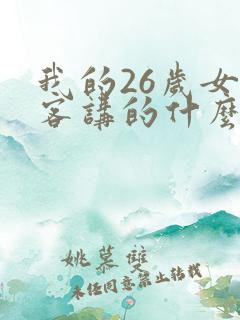 我的26歲女
客講的什麼
姚慕雙
未经同意禁止转载